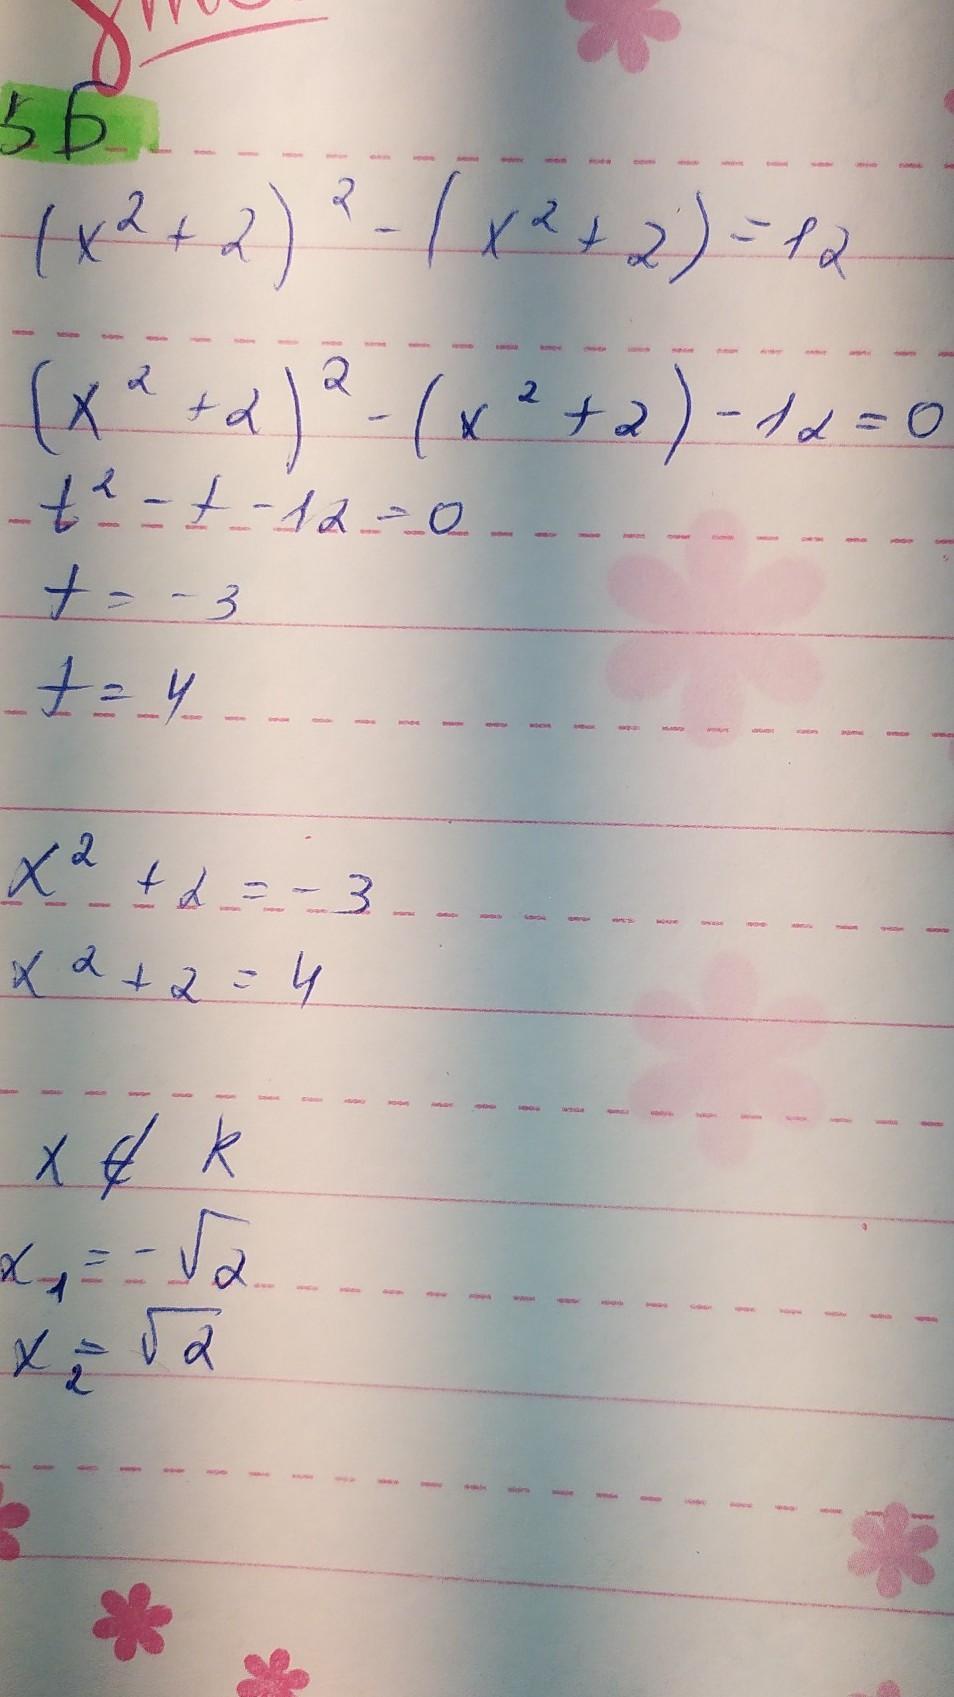 5Б
(x² + 2)² - (x² + 2) = 12
(x² + 2)² - (x² + 2) - 12 = 0
t² - t - 12 = 0
t = - 3
t = 4
x² + 2 = - 3
x² + 2 = 4
x ∉ k
x₁ = - √2
x₂ = √2